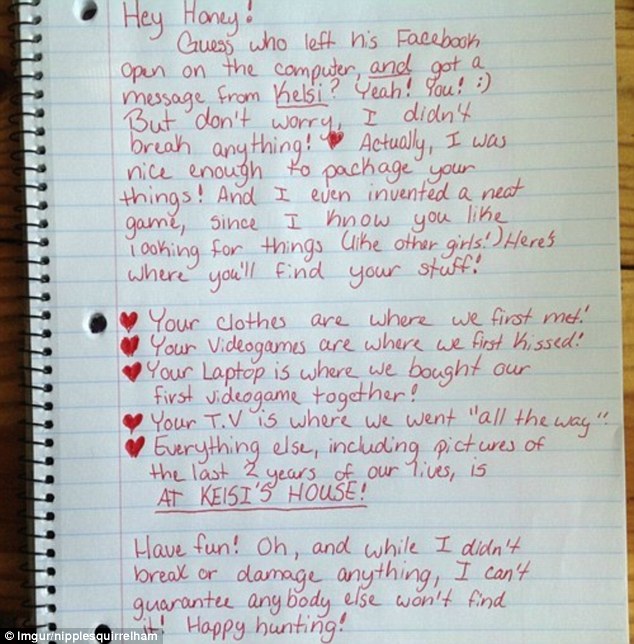 Hey Honey!
Guess who left his Facebook
open on the computer, and got a
message from Kelsi? Yeah! You! :)
But don't worry, I didn't
break anything! ♥ Actually, I was
nice enough to package your
things! And I even invented a neat
game, since I know you like
looking for things (like other girls!) Here's
where you'll find your stuff!
♥ Your clothes are where we first met!
♥ Your Videogames are where we first kissed!
♥ Your Laptop is where we bought our
first videogame together!
♥ Your T.V is where we went "all the way".
♥ Everything else, including pictures of
the last 2 years of our lives, is
AT KELSI'S HOUSE!
Have fun! Oh, and while I didn't
break or damage anything, I can't
guarantee anybody else won't find
it! Happy hunting!
© Imgur/nipplesquirrelham